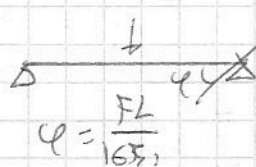 φ
φ = FL / 16EI